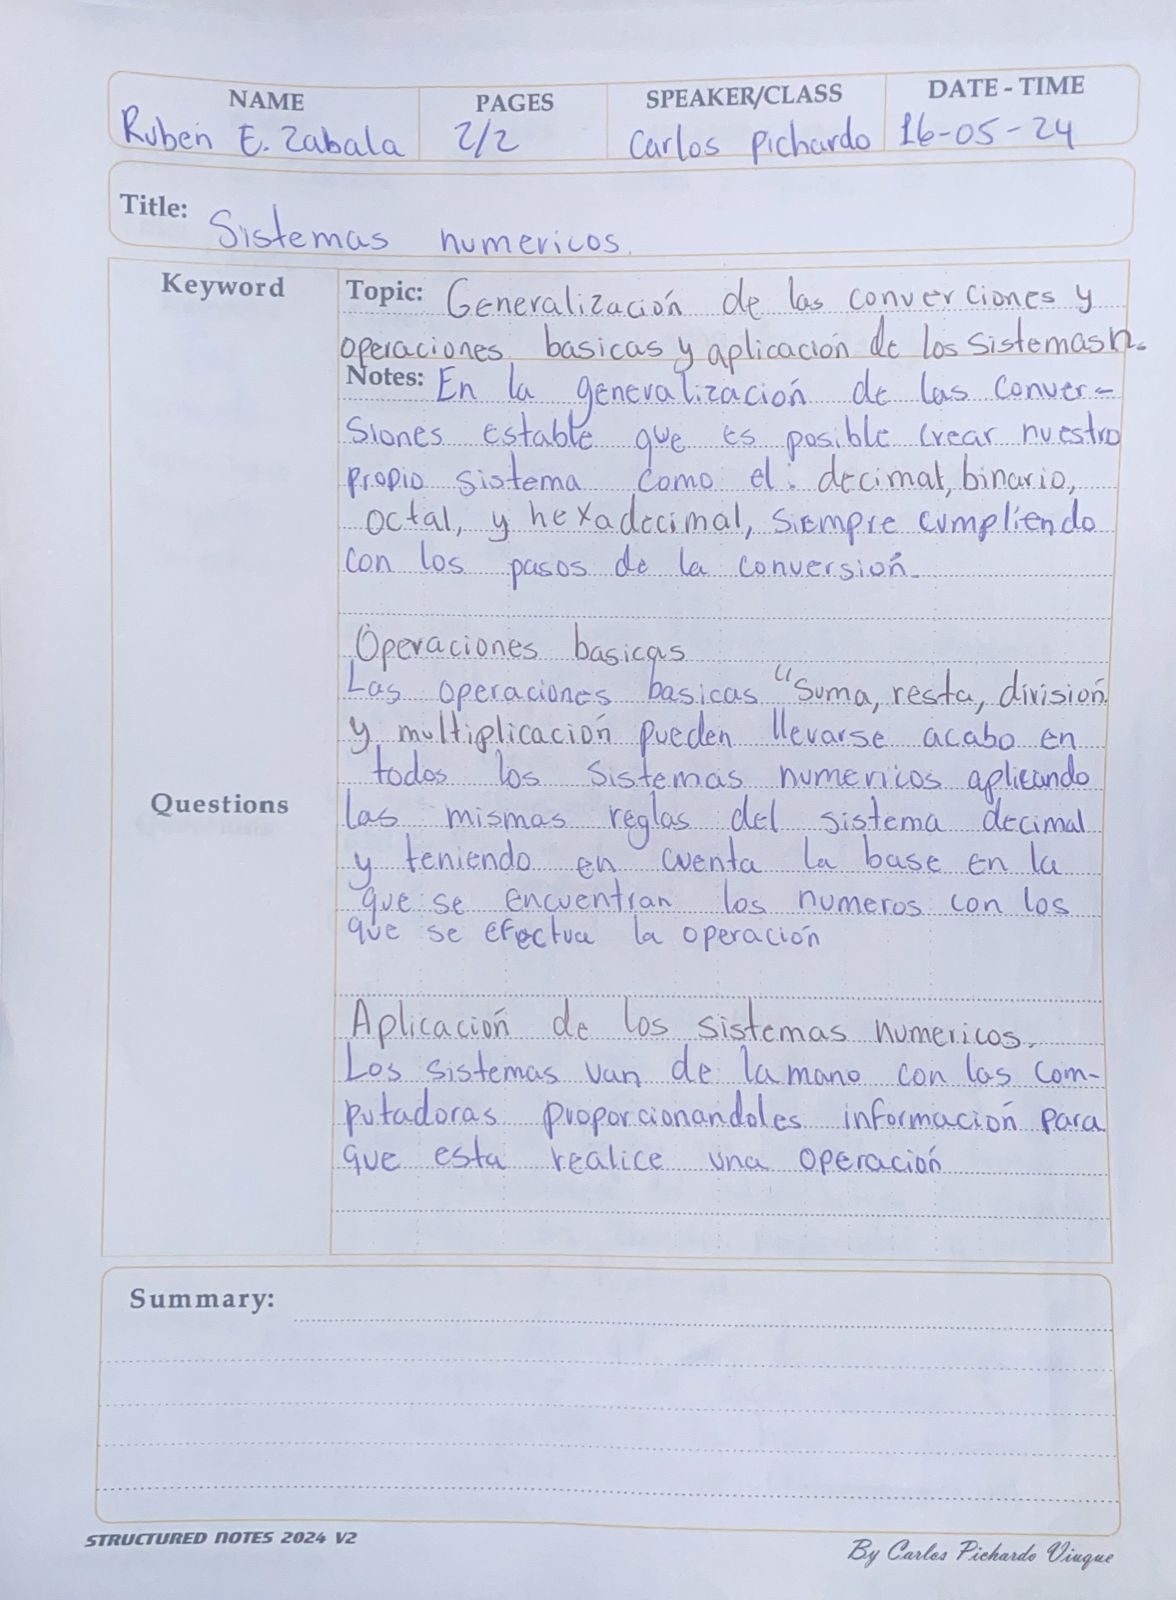 NAME PAGES SPEAKER/CLASS DATE - TIME
Ruben E. Zabala 2/2 Carlos Pichardo 16-05-24
Title: Sistemas numericos.
Keyword
Topic: Generalización de las converciones y
operaciones basicas y aplicación de los sistemas n.
Notes: En la generalización de las conver-
siones estable que es posible crear nuestro
propio sistema como el: decimal, binario,
octal, y hexadecimal, siempre cumpliendo
con los pasos de la conversión.
Operaciones basicas
Las operaciones basicas "Suma, resta, división
y multiplicación pueden llevarse acabo en
todos los sistemas numericos aplicando
Questions
las mismas reglas del sistema decimal
y teniendo en cuenta la base en la
que se encuentran los numeros con los
que se efectua la operación
Aplicación de los sistemas numericos.
Los sistemas van de la mano con las com-
putadoras proporcionandoles información para
que esta realice una operación
Summary:
STRUCTURED NOTES 2024 V2
By Carlos Pichardo Viuque